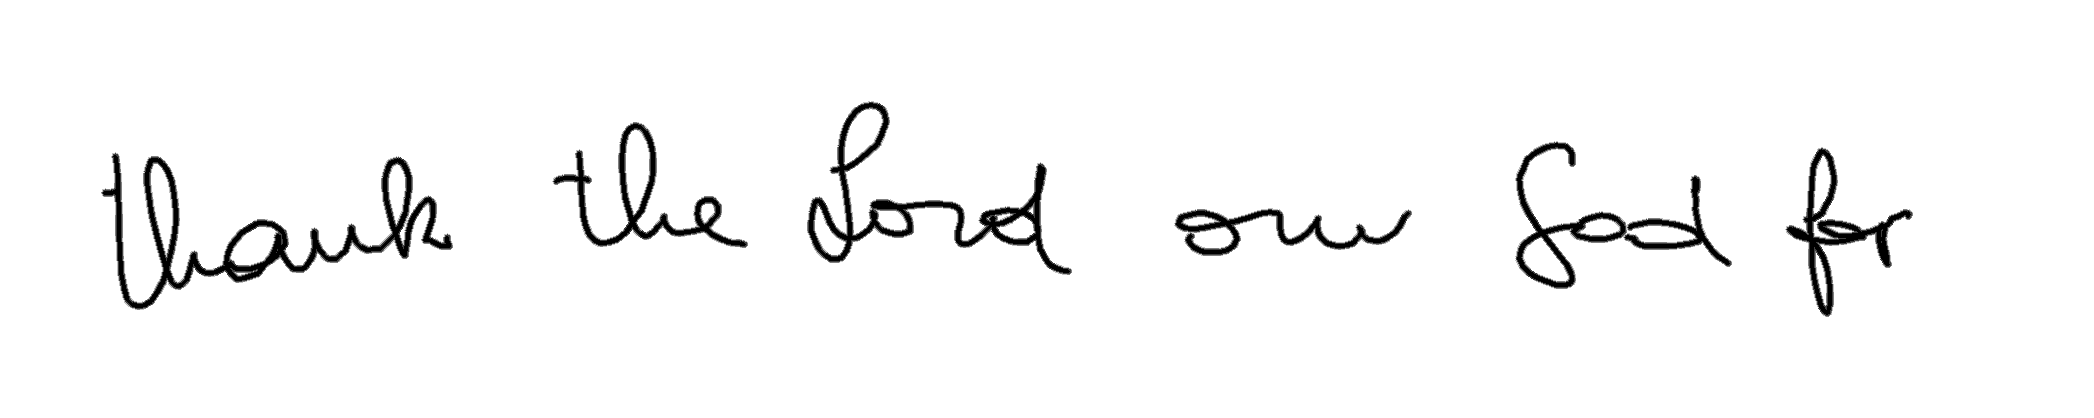 thank the Lord our God for